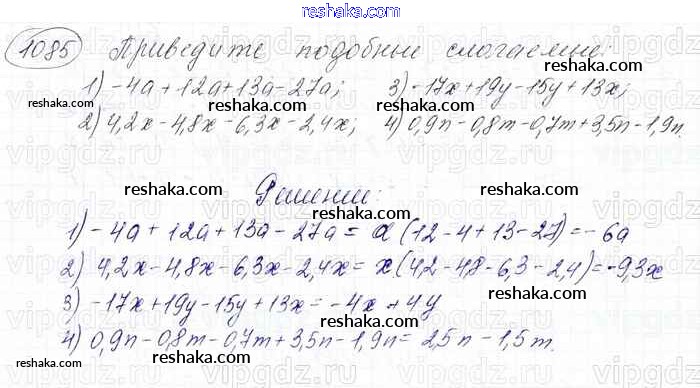 reshaka.ru
1085 Приведите подобные слагаемые:
1) -4a + 12a + 13a - 27a; 3) -17x + 19y - 15y + 13x;
reshaka.ru reshaka.ru reshaka.ru
2) 4,2x - 4,8x - 6,3x - 2,4x; 4) 0,9n - 0,8m - 0,7m + 3,5n - 1,9n.
reshaka.ru reshaka.ru reshaka.ru
Решение:
1) -4a + 12a + 13a - 27a = a(12 - 4 + 13 - 27) = -6a
reshaka.ru reshaka.ru reshaka.ru
2) 4,2x - 4,8x - 6,3x - 2,4x = x(4,2 - 4,8 - 6,3 - 2,4) = -9,3x
3) -17x + 19y - 15y + 13x = -4x + 4y
reshaka.ru
4) 0,9n - 0,8m - 0,7m + 3,5n - 1,9n = 2,5n - 1,5m.
reshaka.ru reshaka.ru reshaka.ru